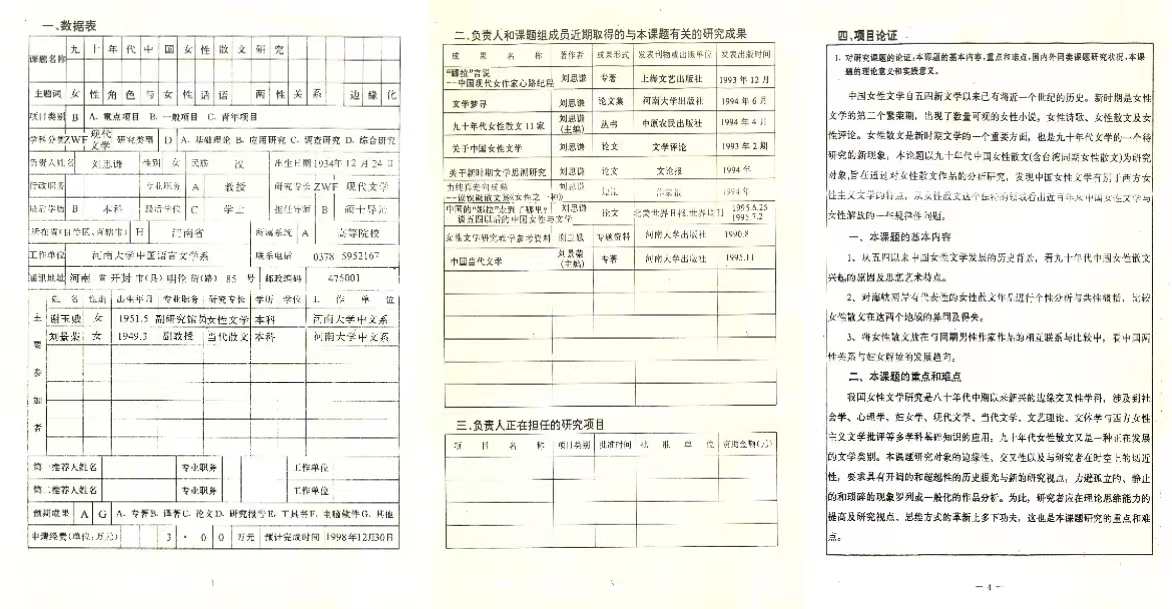 一、数据表
课题名称 九十年代中国女性散文研究
主题词 女性角色与女性话语 两性关系 边缘化
项目类别 B A. 重点项目 B. 一般项目 C. 青年项目
学科分类 ZWF 现代文学 研究类型 D A. 基础理论 B. 应用研究 C. 调查研究 D. 综合研究
负责人姓名 刘思谦 性别 女 民族 汉 出生日期 1934年12月24日
行政职务 专业职务 A 教授 研究专长 ZWF 现代文学
最后学历 B 本科 最后学位 C 学士 担任导师 B 硕士导师
所在省(自治区、直辖市) H 河南省 所属系统 A 高等院校
工作单位 河南大学中国语言文学系 联系电话 0378 5952167
通讯地址 河南省开封市(县)明伦街(路) 85 号 邮政编码 475001
主要参加者
姓名 性别 出生年月 专业职务 研究专长 学历 学位 工作单位
谢玉娥 女 1951.5 副研究馆员 女性文学 本科 河南大学中文系
刘景荣 女 1949.3 副教授 当代散文 本科 河南大学中文系
第一推荐人姓名 专业职务 工作单位
第二推荐人姓名 专业职务 工作单位
预期成果 A G A. 专著 B. 译著 C. 论文 D. 研究报告 E. 工具书 F. 电脑软件 G. 其他
申请经费(单位:万元) 3·00 万元 预计完成时间 1998年12月30日
1
二、负责人和课题组成员近期取得的与本课题有关的研究成果
成果名称 著作者 成果形式 发表刊物或出版单位 发表出版时间
“娜拉”言说
—中国现代女作家心路纪程 刘思谦 专著 上海文艺出版社 1993年12月
文学梦寻 刘思谦 论文集 河南大学出版社 1994年6月
九十年代女性散文11家 刘思谦(主编) 丛书 中原农民出版社 1994年4月
关于中国女性文学 刘思谦 论文 文学评论 1993年2期
关于新时期文学思潮研究 刘思谦 论文 文论报 1994年
刘思谦 1994年
中国的“娜拉”走到了哪里?
谈五四以后的中国女性与文学 刘思谦 论文 北美世界日报.世界周刊 1995.6.25 1995.7.2
女性文学研究教学参考资料 谢玉娥 专题资料 河南大学出版社 1990.8
中国当代文学 刘景荣(主编) 专著 河南大学出版社 1995.11
三、负责人正在担任的研究项目
项目名称 项目类别 批准时间 批准单位 资助金额(元)
四、项目论证
1. 对研究课题的论证:本课题的基本内容,重点和难点,国内外同类课题研究状况,本课
题的理论意义和实践意义。
中国女性文学自五四新文学以来已有将近一个世纪的历史。新时期是女性
文学的第二个繁荣期,出现了数量可观的女性小说、女性诗歌、女性散文及女
性评论。女性散文是新时期文学的一个重要方面,也是九十年代文学的一个待
研究的新现象。本论题以九十年代中国女性散文(含台湾同期女性散文)为研究
对象,旨在通过对女性散文作品的分析研究,发现中国女性文学有别于西方女
性主义文学的特点,从女性散文这个独特的领域看出近百年来中国女性文学与
女性解放的一些规律性问题。
一、本课题的基本内容
1、从五四以来中国女性文学发展的历史背景,看九十年代中国女性散文
兴起的原因及思想艺术特点。
2、对海峡两岸有代表性的女性散文作品进行个性分析与共性概括,比较
女性散文在这两个地域的异同及得失。
3、将女性散文放在与同期男性作家作品的相互联系与比较中,看中国两
性关系与妇女解放的发展趋向。
二、本课题的重点和难点
我国女性文学研究是八十年代中期以来新兴的边缘交叉性学科,涉及到社
会学、心理学、妇女学、现代文学、当代文学、文艺理论、文体学与西方女性
主义文学批评等多学科基础知识的应用。九十年代女性散文又是一种正在发展
的文学类别。本课题研究对象的边缘性、交叉性以及与研究者在时空上的切近
性,要求具有开阔的和超越性的历史眼光与新的研究视点,力避孤立的、静止
的和琐碎的现象罗列或一般化的作品分析。为此,研究者应在理论思维能力的
提高及研究视点、思维方式的革新上多下功夫,这也是本课题研究的重点和难
点。
— 4 —